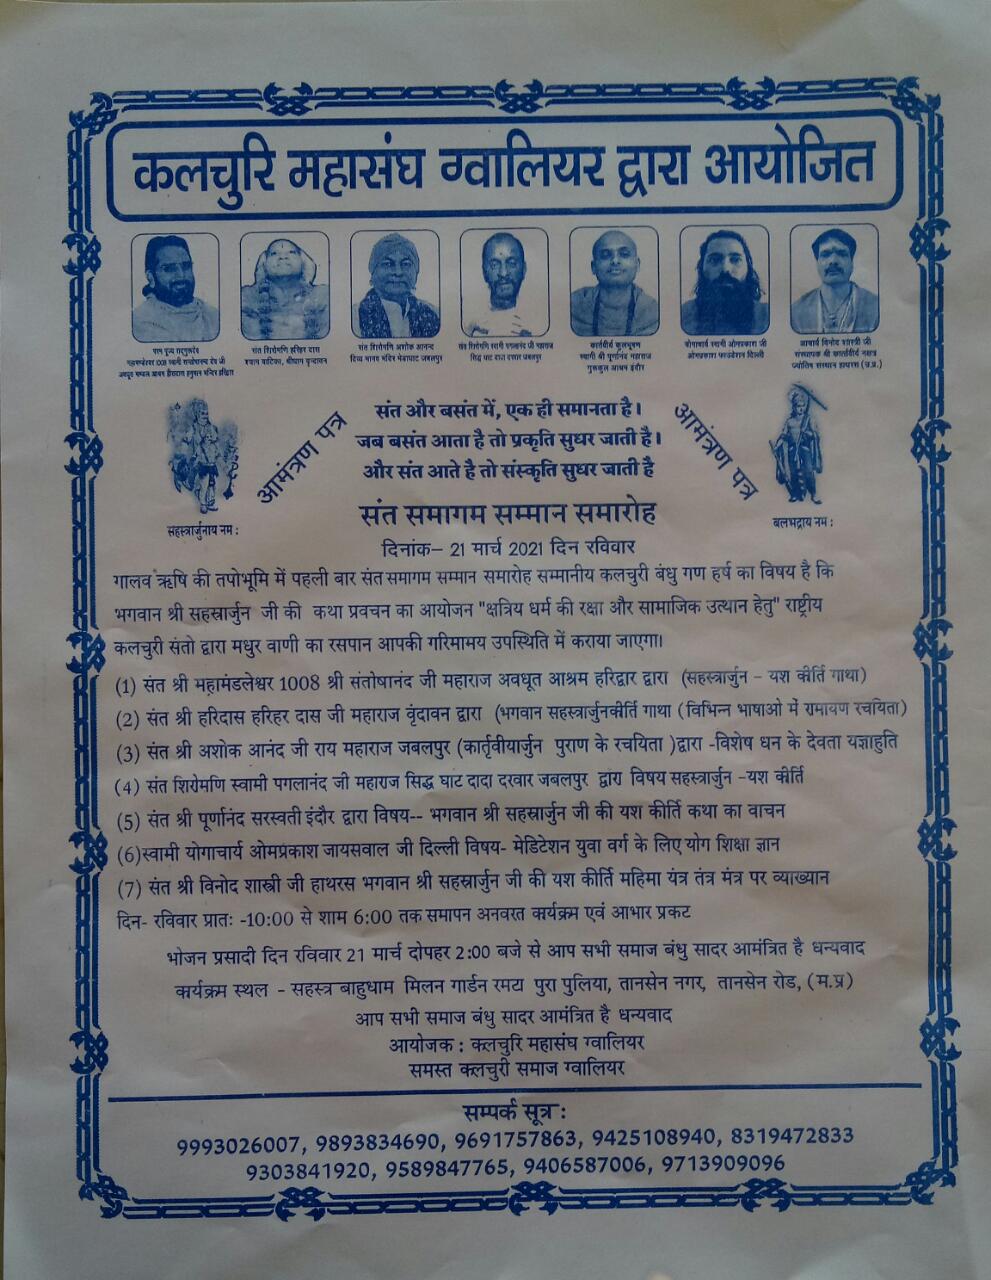 कलचुरि महासंघ ग्वालियर द्वारा आयोजित
परम पूज्य सद्गुरूदेव
संत शिरोमणि हरिहर दास
श्रीधाम वृन्दावन
संत शिरोमणि अशोक आनन्द
दिव्य मानव मंदिर भेड़ाघाट जबलपुर
संत शिरोमणि स्वामी पगलानंद जी महाराज
सिद्ध घाट दादा दरवार जबलपुर
कार्तवीर्य कुलभूषण
स्वामी श्री पूर्णानंद महाराज
गुरूकुल आश्रम इंदौर
योगाचार्य स्वामी ओमप्रकाश जी
ओमप्रकाश फाउंडेशन दिल्ली
आचार्य विनोद शास्त्री जी
संस्थापक श्री कार्तवीर्य नक्षत्र
ज्योतिष संस्थान हाथरस (उ.प्र.)
आमंत्रण पत्र
आमंत्रण पत्र
संत और बसंत में, एक ही समानता है।
जब बसंत आता है तो प्रकृति सुधर जाती है।
और संत आते है तो संस्कृति सुधर जाती है
सहस्त्रार्जुनाय नम :
बलभद्राय नम :
संत समागम सम्मान समारोह
दिनांक– 21 मार्च 2021 दिन रविवार
गालव ऋषि की तपोभूमि में पहली बार संत समागम सम्मान समारोह सम्मानीय कलचुरी बंधु गण हर्ष का विषय है कि
भगवान श्री सहस्त्रार्जुन जी की कथा प्रवचन का आयोजन "क्षत्रिय धर्म की रक्षा और सामाजिक उत्थान हेतु" राष्ट्रीय
कलचुरी संतो द्वारा मधुर वाणी का रसपान आपकी गरिमामय उपस्थिति में कराया जाएगा।
(1) संत श्री महामंडलेश्वर 1008 श्री संतोषानंद जी महाराज अवधूत आश्रम हरिद्वार द्वारा (सहस्त्रार्जुन – यश कीर्ति गाथा)
(2) संत श्री हरिदास हरिहर दास जी महाराज वृंदावन द्वारा (भगवान सहस्त्रार्जुनकीर्ति गाथा (विभिन्न भाषाओ में रामायण रचयिता)
(3) संत श्री अशोक आनंद जी राय महाराज जबलपुर (कार्तृवीयार्जुन पुराण के रचयिता )द्वारा -विशेष धन के देवता यज्ञाहुति
(4) संत शिरोमणि स्वामी पगलानंद जी महाराज सिद्ध घाट दादा दरवार जबलपुर द्वारा विषय सहस्त्रार्जुन -यश कीर्ति
(5) संत श्री पूर्णानंद सरस्वती इंदौर द्वारा विषय-- भगवान श्री सहस्त्रार्जुन जी की यश कीर्ति कथा का वाचन
(6)स्वामी योगाचार्य ओमप्रकाश जायसवाल जी दिल्ली विषय- मेडिटेशन युवा वर्ग के लिए योग शिक्षा ज्ञान
(7) संत श्री विनोद शास्त्री जी हाथरस भगवान श्री सहस्त्रार्जुन जी की यश कीर्ति महिमा यंत्र तंत्र मंत्र पर व्याख्यान
दिन- रविवार प्रातः -10:00 से शाम 6:00 तक समापन अनवरत कार्यक्रम एवं आभार प्रकट
भोजन प्रसादी दिन रविवार 21 मार्च दोपहर 2:00 बजे से आप सभी समाज बंधु सादर आमंत्रित है धन्यवाद
कार्यक्रम स्थल - सहस्त्र बाहुधाम मिलन गार्डन रमटा पुरा पुलिया, तानसेन नगर, तानसेन रोड, (म.प्र)
आप सभी समाज बंधु सादर आमंत्रित है धन्यवाद
आयोजक : कलचुरि महासंघ ग्वालियर
समस्त कलचुरी समाज ग्वालियर
सम्पर्क सूत्र :
9993026007, 9893834690, 9691757863, 9425108940, 8319472833
9303841920, 9589847765, 9406587006, 9713909096